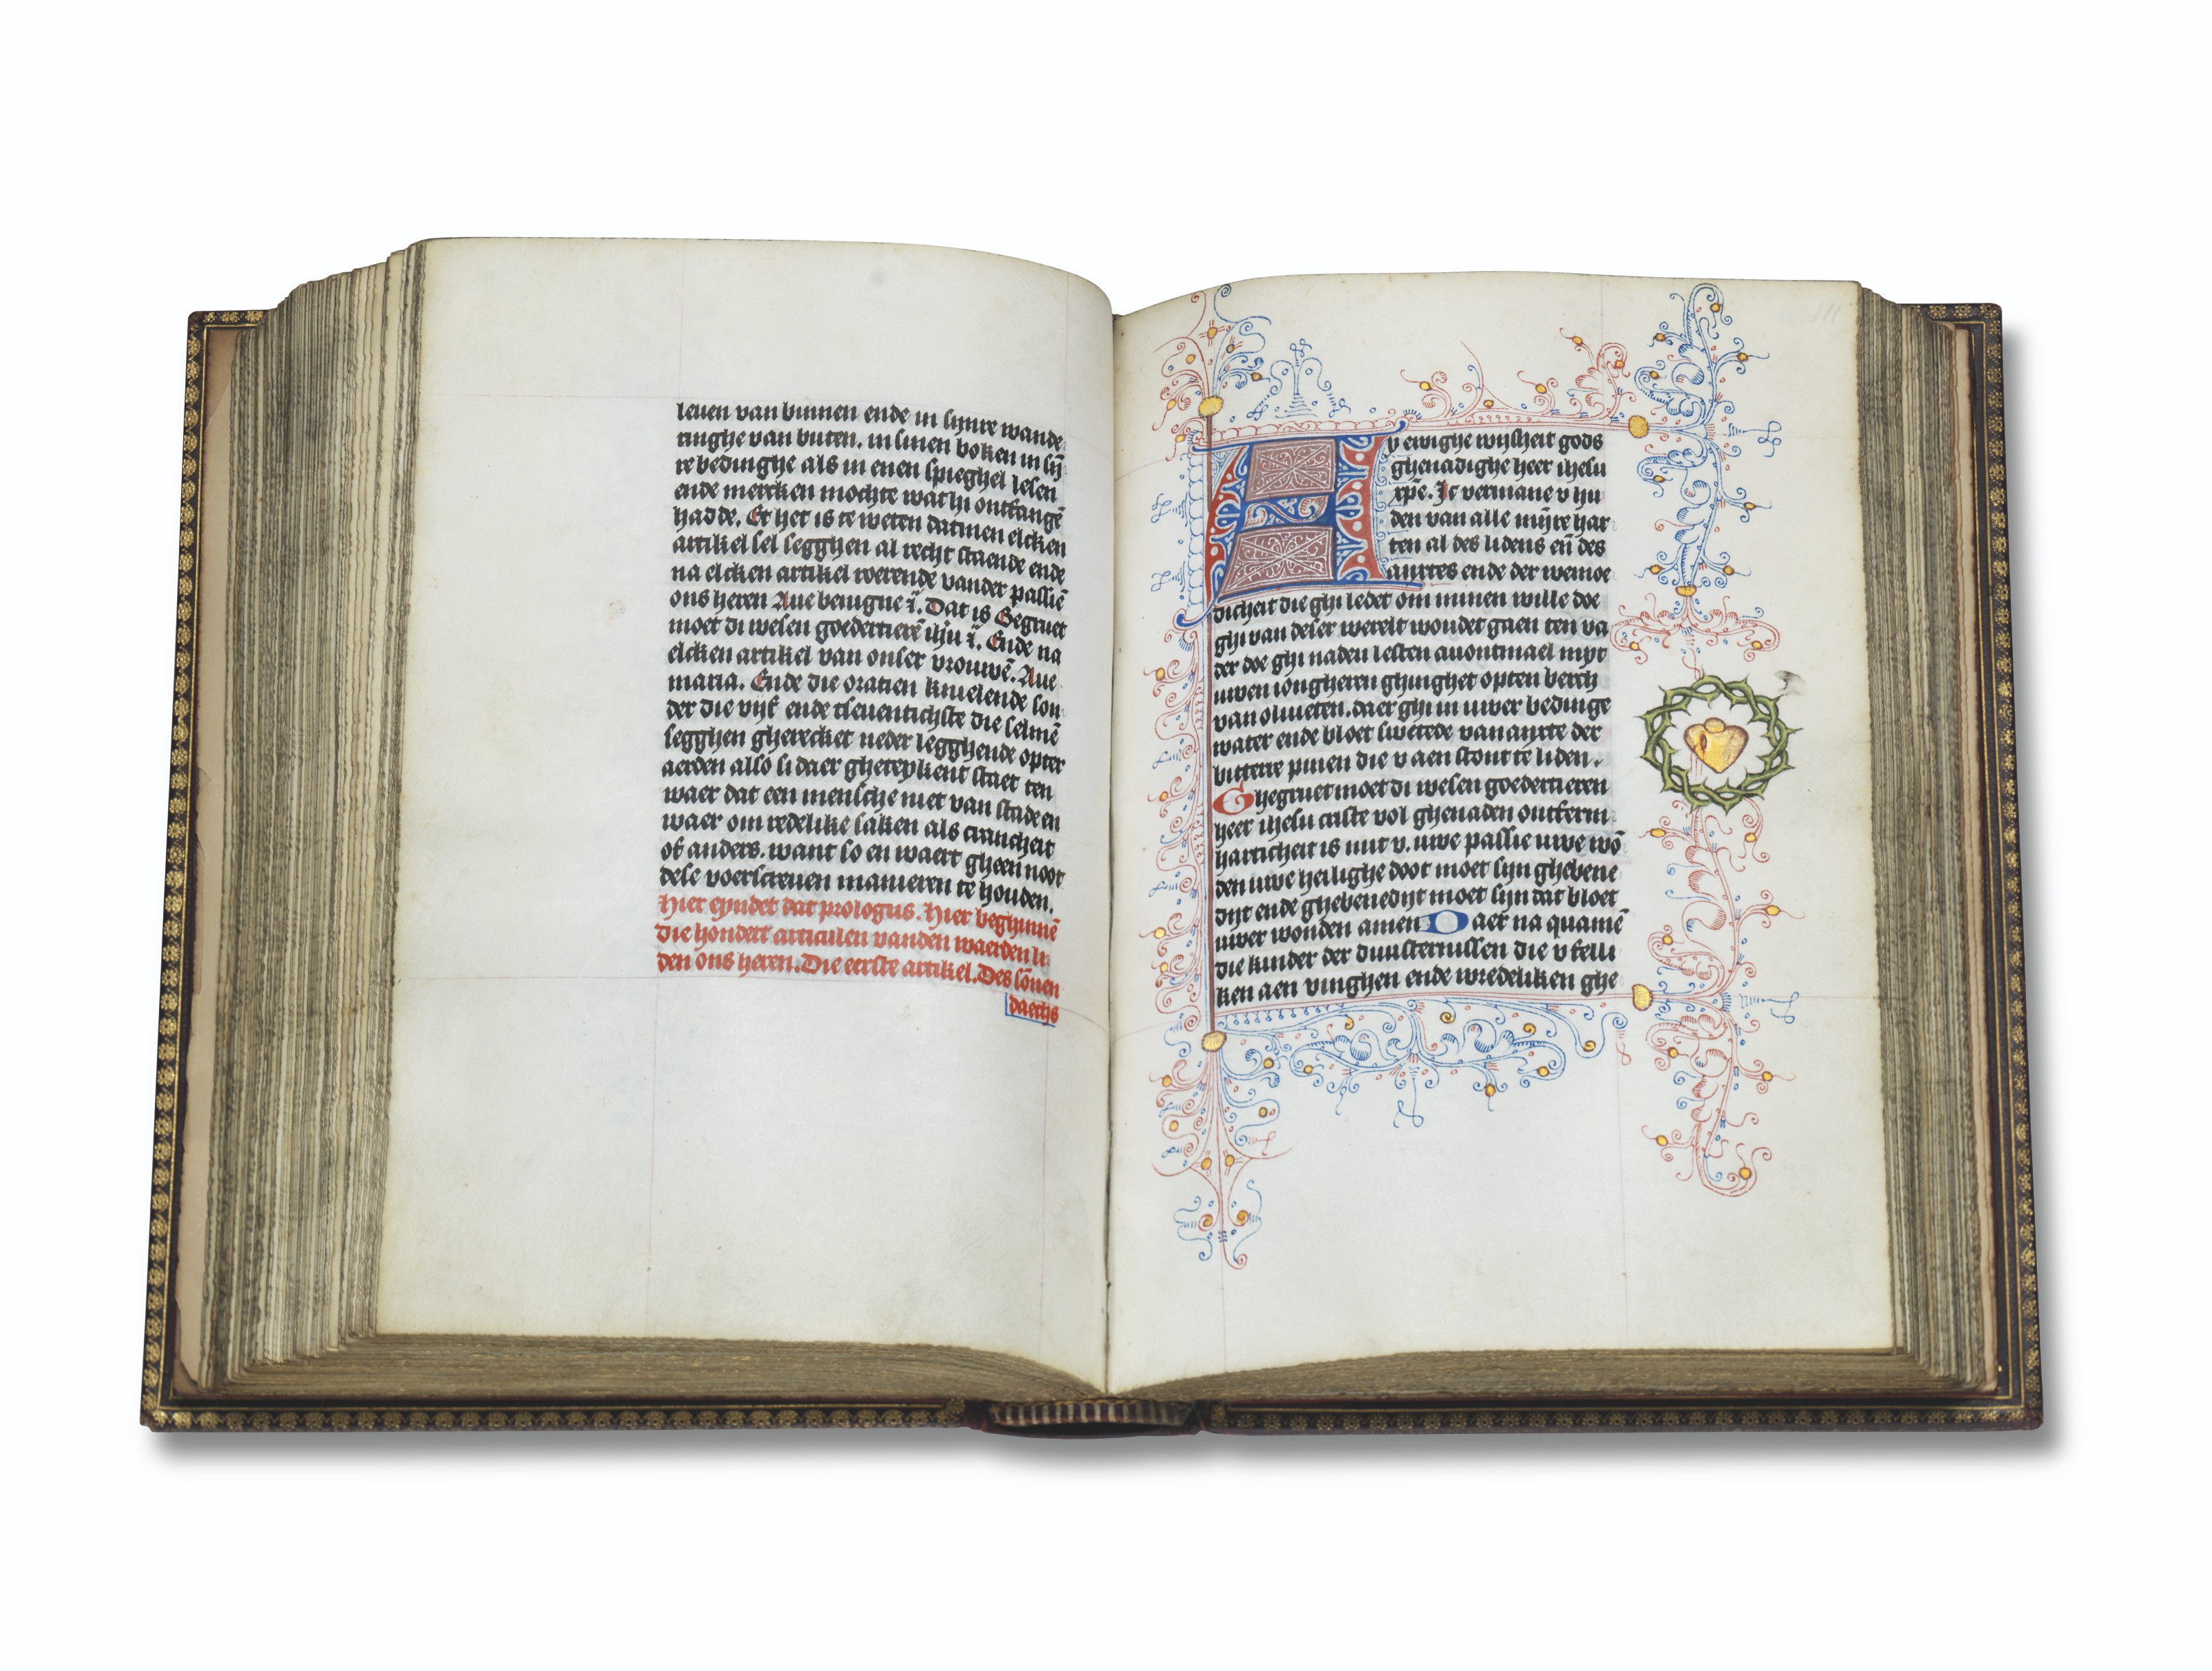 leuen van binnen ende in sijnre wande
ringhe van buten. in sinen boken in sij
re bedinghe als in enen spieghel lesen
ende mercken mochte wat hi ontfangē
hadde. Et het is te weten datmen elcken
artikel sel segghen al recht staende ende
na elcken artikel roerende vander passiē
ons heren Aue benigne i. Dat is Gegruet
moet di wesen goedertierē ihu i. Ende na
elcken artikel van onser vrouwē. Aue
maria. Ende die oratien knielende son
der die vijf ende tseuentichste die selmē
segghen gherecket neder legghende opter
aerden also si daer gheteykent staet ten
waer dat een mensche niet van stade en
waer om redelike saken als crancheit
of anders. want so en waert gheen noot
dese voerscreuen manieren te houden.
Hier eyndet dat prologus. Hier beghinnē
die hondert articulen vanden waerden li
den ons heren. Die eerste artikel. Des sōnen
daechs
Ay ewighe wijsheit gods
ghenadighe heer ihesu
xpē. Ic vermane v hu
den van alle mijnre har
ten al des lidens eñ des
anxtes ende der weemoe
dicheit die ghi ledet om minen wille doe
ghi van deser werelt woudet gaen ten va
der doe ghi naden lesten auontmael myt
uwen iongheren ghinghet opten berch
van oliueten. daer ghi in uwer bedinge
water ende bloet swetede van anxte der
bitterre pinen die v aen stont te liden.
Ghegruet moet di wesen goedertieren
heer ihesu criste vol ghenaden ontferm
harticheit is mit v. uwe passie uwe wō
den uwe heilighe doot moet sijn ghebene
dijt ende ghebenedijt moet sijn dat bloet
uwer wonden amen Daer na quamē
die kinder der duusternissen die v felli
ken aen vinghen ende wredeliken ghe